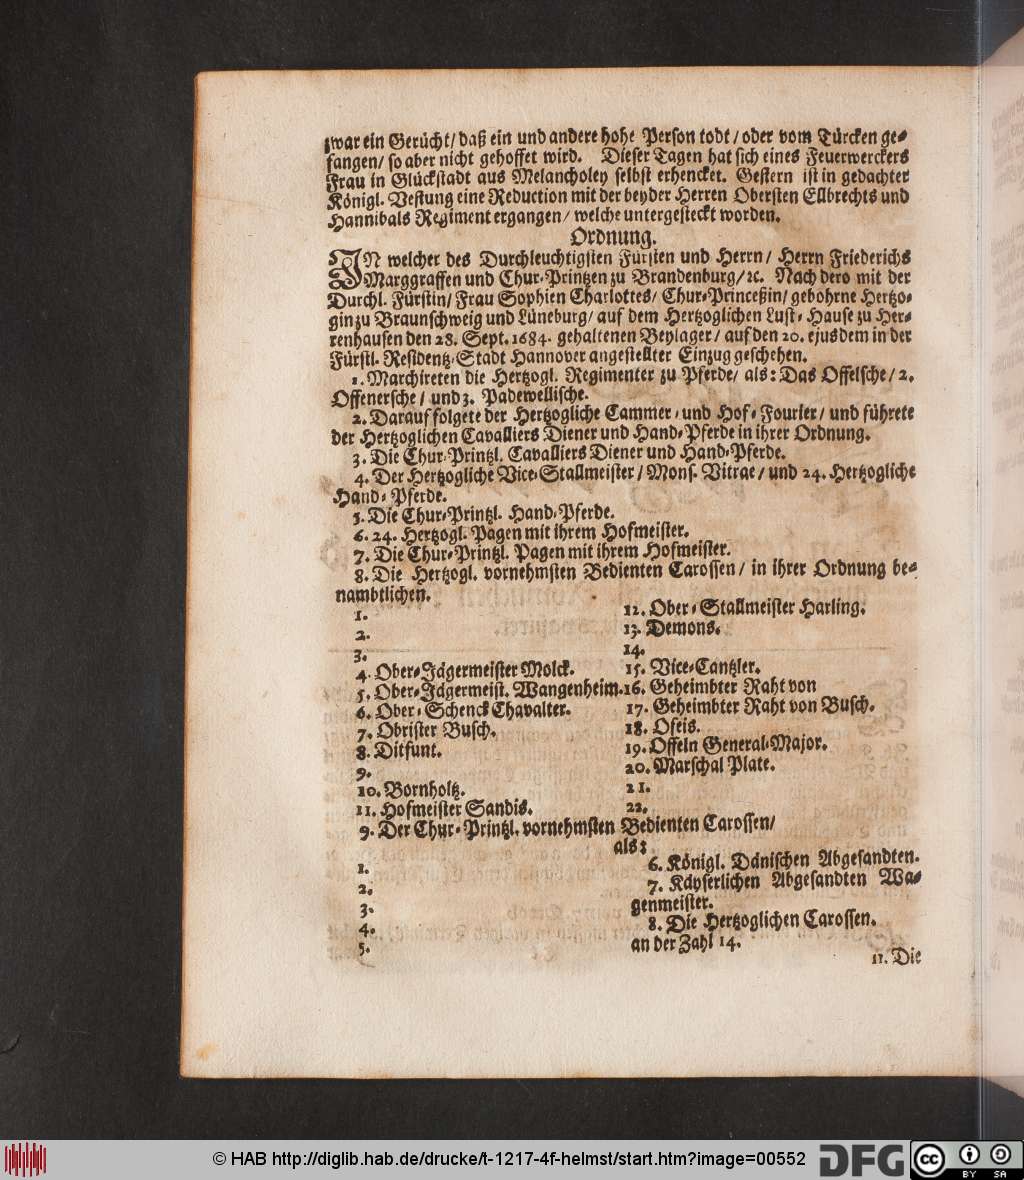 zwar ein Gerücht/ daß ein und andere hohe Person todt/ oder vom Türcken ge-
fangen/ so aber nicht gehoffet wird. Dieser Tagen hat sich eines Feuerwerckers
Frau in Glückstadt aus Melancholey selbst erhencket. Gestern ist in gedachter
Königl. Vestung eine Reduction mit der beyder Herren Obersten Ellbrechts und
Hannibals Regiment ergangen/ welche untergesteckt worden.
Ordnung.
IN welcher des Durchleuchtigsten Fürsten und Herrn/ Herrn Friederichs
Marggraffen und Chur-Printzen zu Brandenburg/ ꝛc. Nach dero mit der
Durchl. Fürstin/ Frau Sophien Charlottes/ Chur-Princeßin/ gebohrne Hertzo-
gin zu Braunschweig und Lüneburg/ auf dem Hertzoglichen Lust-Hause zu Her-
renhausen den 28. Sept. 1684. gehaltenen Beylager/ auf den 20. ejusdem in der
Fürstl. Residentz-Stadt Hannover angestellter Einzug geschehen.
1. Marchireten die Hertzogl. Regimenter zu Pferde/ als: Das Offelsche/ 2.
Offenersche/ und 3. Padewellische.
2. Darauf folgete der Hertzogliche Cammer- und Hof-Fourier/ und führete
der Hertzoglichen Cavalliers Diener und Hand-Pferde in ihrer Ordnung.
3. Die Chur-Printzl. Cavalliers Diener und Hand-Pferde.
4. Der Hertzogliche Vice-Stallmeister/ Mons. Vitrae/ und 24. Hertzogliche
Hand-Pferde.
5. Die Chur-Printzl. Hand-Pferde.
6. 24. Hertzogl. Pagen mit ihrem Hofmeister.
7. Die Chur-Printzl. Pagen mit ihrem Hofmeister.
8. Die Hertzogl. vornehmsten Bedienten Carossen/ in ihrer Ordnung be-
nambtlichen.
1.
2.
3.
4. Ober-Jägermeister Molck.
5. Ober-Jägermeist. Wangenheim.
6. Ober-Schenck Chavalter.
7. Obrister Busch.
8. Ditfunt.
9.
10. Bornholtz.
11. Hofmeister Sandis.
12. Ober-Stallmeister Harling.
13. Demons.
14.
15. Vice-Cantzler.
16. Geheimbter Raht von
17. Geheimbter Raht von Busch.
18. Ofeis.
19. Offeln General-Major.
20. Marschal Plate.
21.
22.
9. Der Chur-Printzl. vornehmsten Bedienten Carossen/
als:
1.
2.
3.
4.
5.
6. Königl. Dänischen Abgesandten.
7. Käyserlichen Abgesandten Wa-
genmeister.
8. Die Hertzoglichen Carossen.
an der Zahl 14.
11. Die
© HAB http://diglib.hab.de/drucke/t-1217-4f-helmst/start.htm?image=00552
DFG
cc BY SA